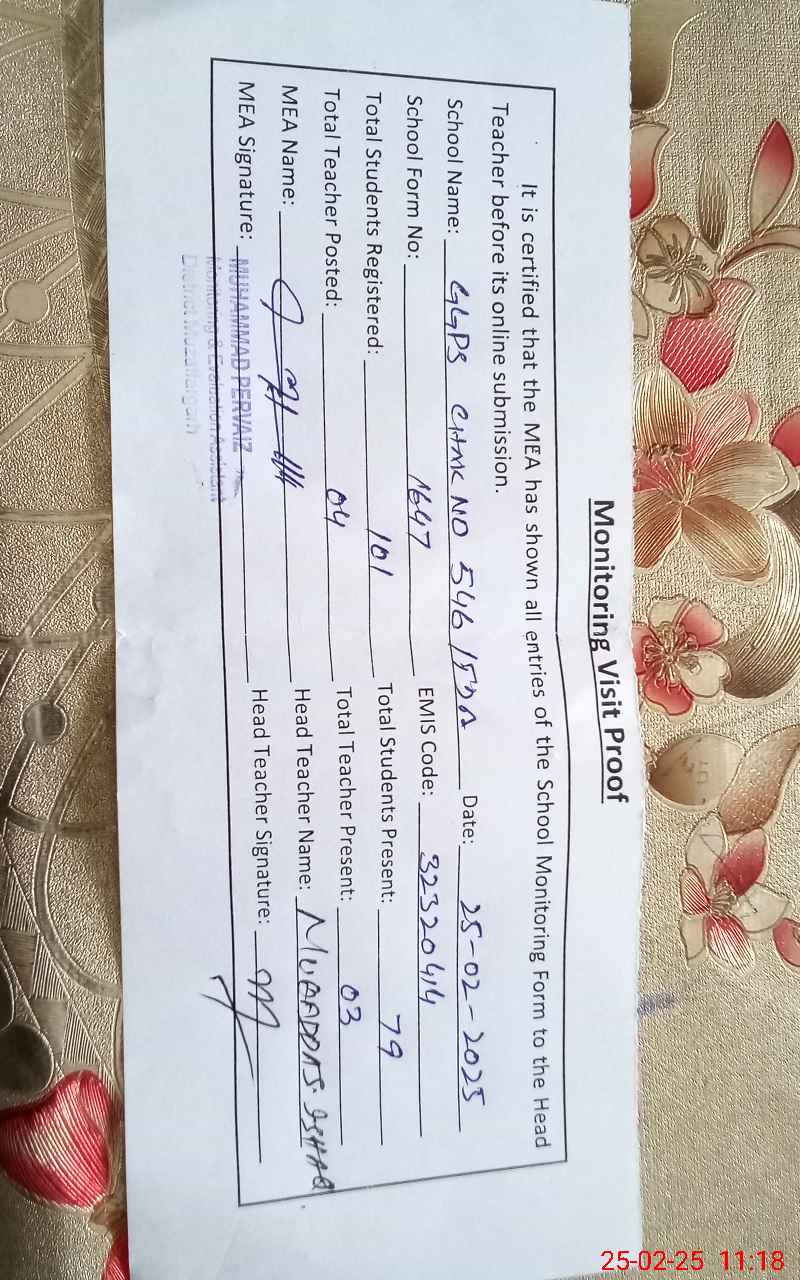 Monitoring Visit Proof
It is certified that the MEA has shown all entries of the School Monitoring Form to the Head
Teacher before its online submission.
School Name: GGPS CHAK NO 546 /5DA Date: 25-02-2025
School Form No: 1647 EMIS Code: 32320414
Total Students Registered: 101 Total Students Present: 79
Total Teacher Posted: 04 Total Teacher Present: 03
MEA Name: Head Teacher Name: MUQADDAS ISHAQ
MEA Signature: Head Teacher Signature:
MUHAMMAD PERVAIZ
Monitoring & Evaluation Assistant
District Muzaffargarh
25-02-25 11:18